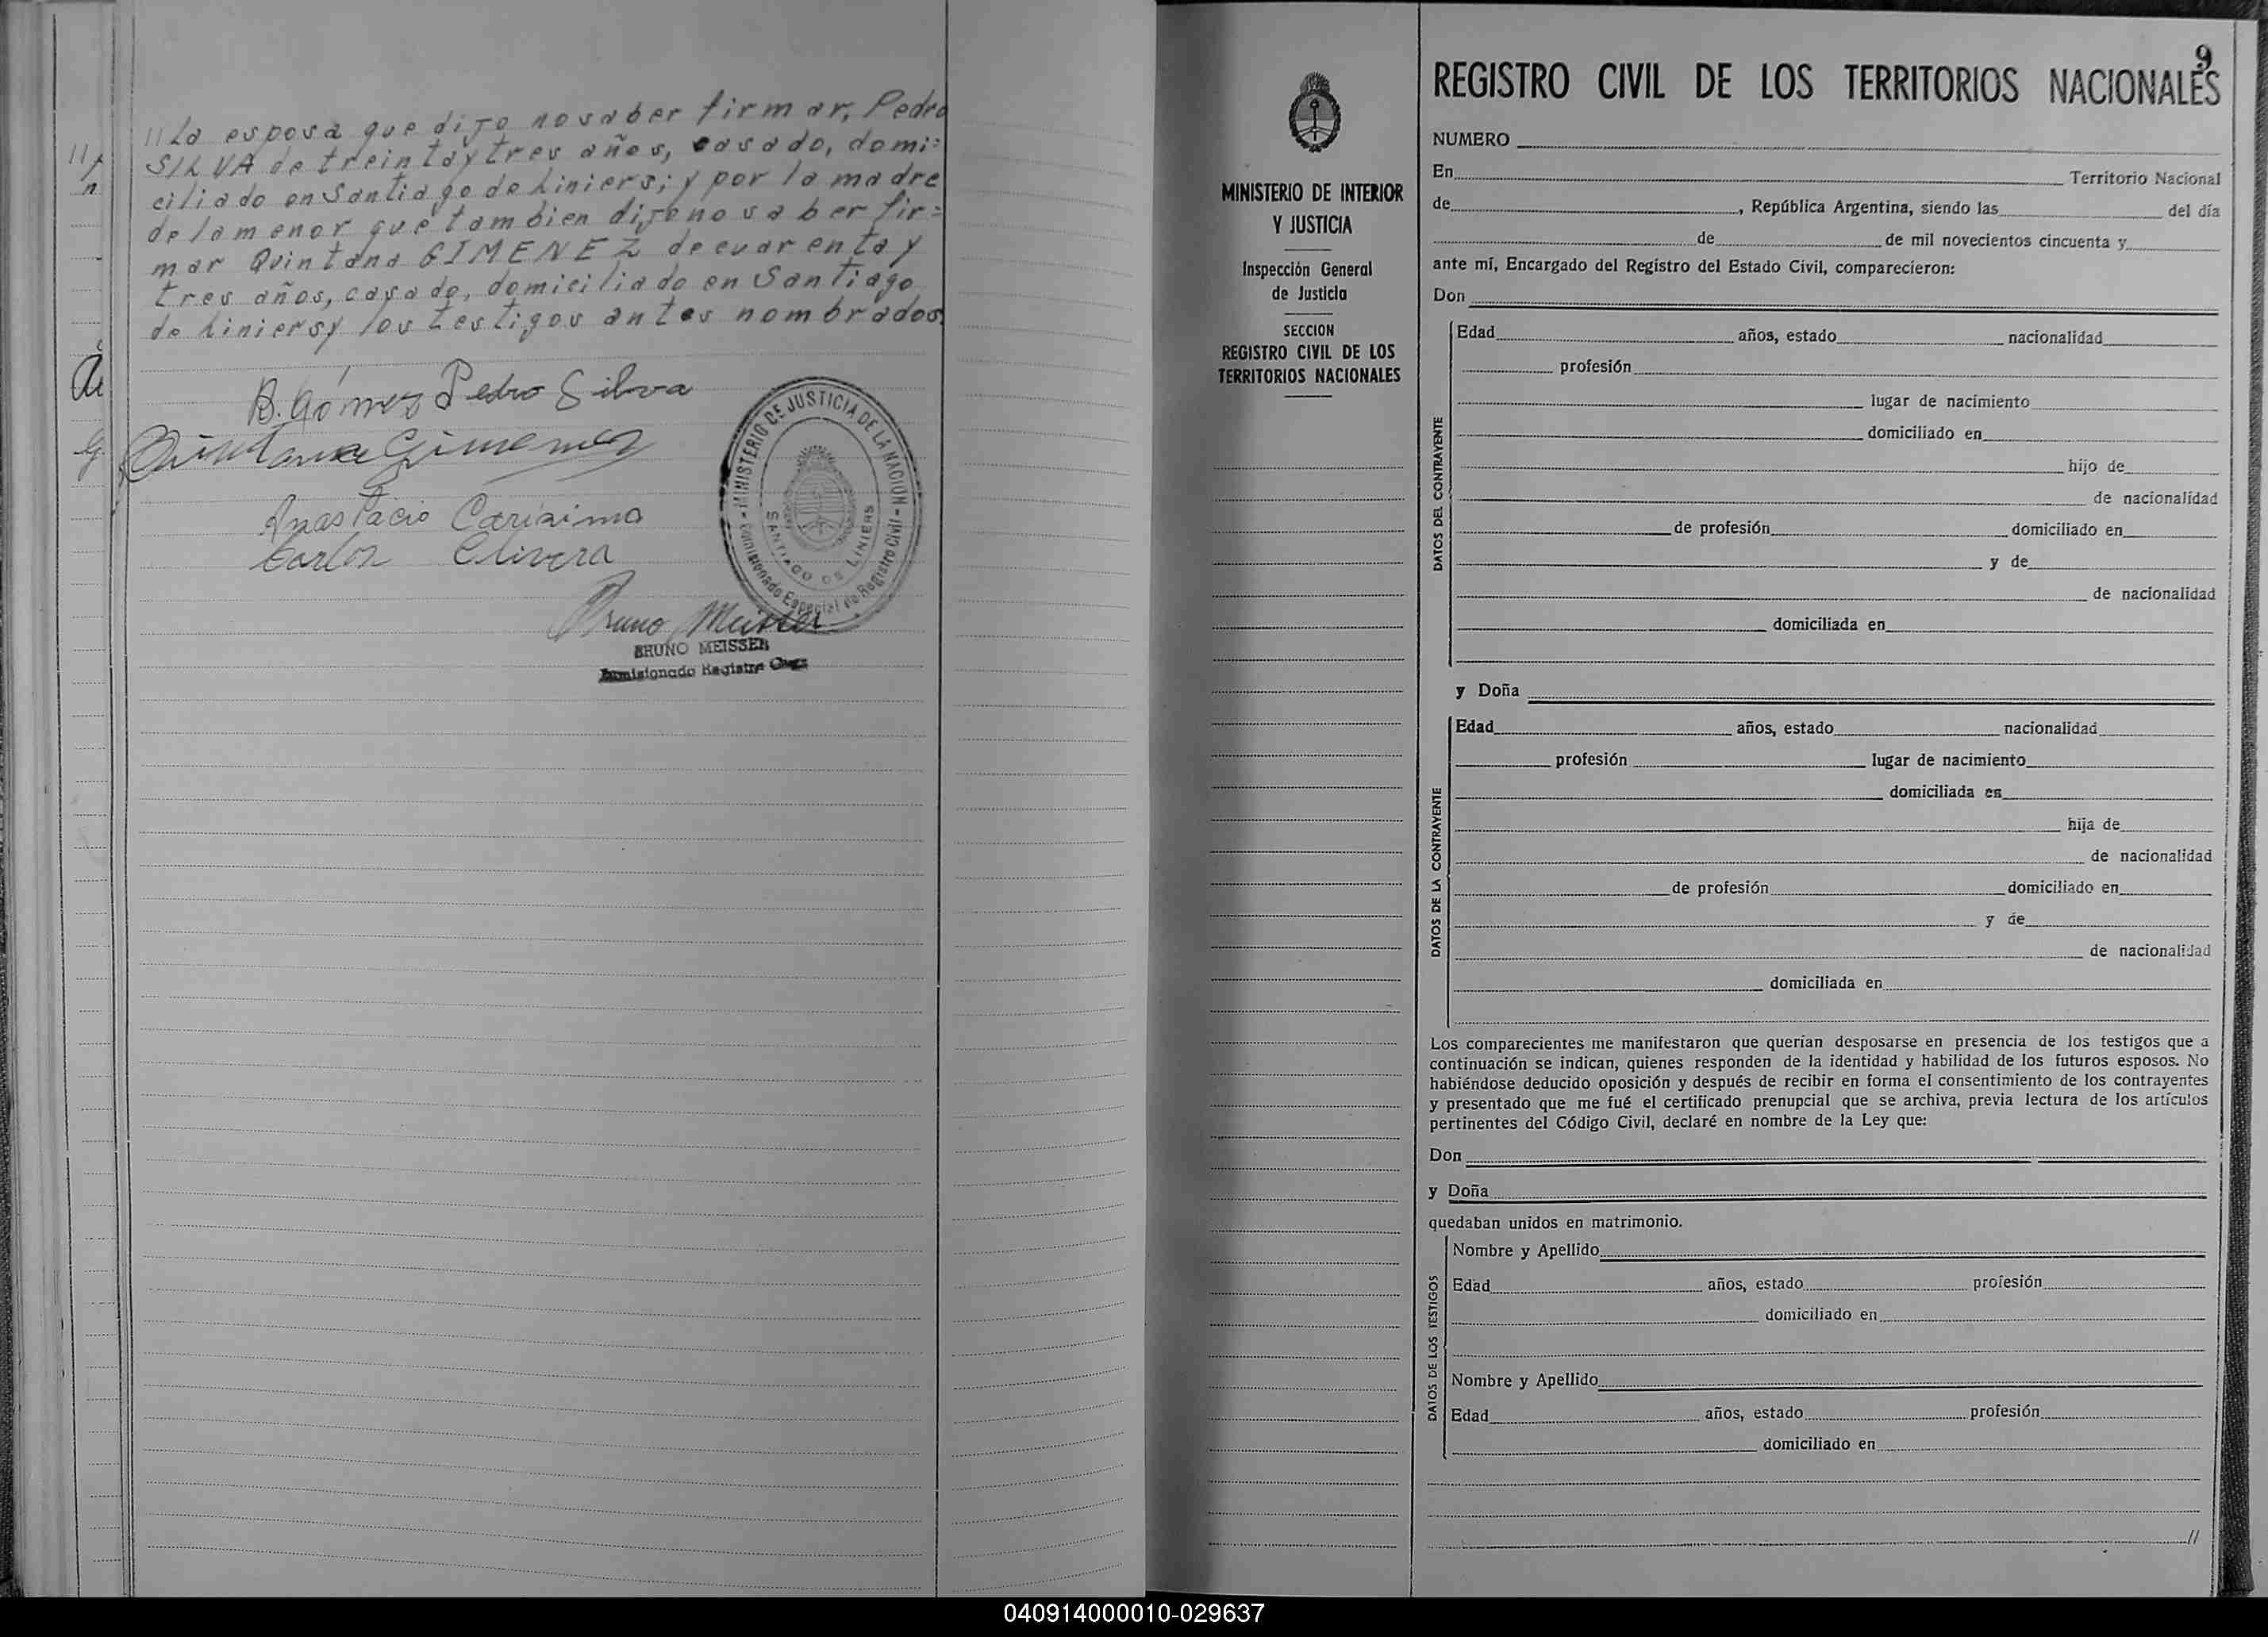 // La esposa que dijo no saber firmar, Pedro
SILVA de treinta y tres años, casado, domi=
ciliado en Santiago de Liniers; y por la madre
de la menor que tambien dijo no saber fir=
mar Quintana GIMENEZ de cuarenta y
tres años, casado, domiciliado en Santiago
de Liniers y los testigos antes nombrados.
B. Gómez Pedro Silva
Quintana Gimenez
Anastacio Carisimo
Carlos Olivera
MINISTERIO DE JUSTICIA DE LA NACION
Comisionado Especial de Registro Civil
SANTIAGO DE LINIERS
Bruno Meisser
BRUNO MEISSER
Comisionado Registro
MINISTERIO DE INTERIOR
Y JUSTICIA
Inspección General
de Justicia
SECCION
REGISTRO CIVIL DE LOS
TERRITORIOS NACIONALES
9
REGISTRO CIVIL DE LOS TERRITORIOS NACIONALES
NUMERO
En Territorio Nacional
de , República Argentina, siendo las del día
de de mil novecientos cincuenta y
ante mí, Encargado del Registro del Estado Civil, comparecieron:
Don
DATOS DEL CONTRAYENTE
Edad años, estado nacionalidad
profesión
lugar de nacimiento
domiciliado en
hijo de
de nacionalidad
de profesión domiciliado en
y de
de nacionalidad
domiciliada en
y Doña
DATOS DE LA CONTRAYENTE
Edad años, estado nacionalidad
profesión lugar de nacimiento
domiciliada en
hija de
de nacionalidad
de profesión domiciliado en
y de
de nacionalidad
domiciliada en
Los comparecientes me manifestaron que querían desposarse en presencia de los testigos que a
continuación se indican, quienes responden de la identidad y habilidad de los futuros esposos. No
habiéndose deducido oposición y después de recibir en forma el consentimiento de los contrayentes
y presentado que me fué el certificado prenupcial que se archiva, previa lectura de los artículos
pertinentes del Código Civil, declaré en nombre de la Ley que:
Don
y Doña
quedaban unidos en matrimonio.
DATOS DE LOS TESTIGOS
Nombre y Apellido
Edad años, estado profesión
domiciliado en
Nombre y Apellido
Edad años, estado profesión
domiciliado en
//
040914000010-029637